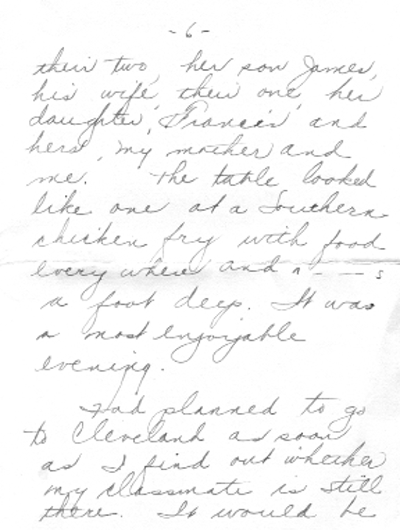 -6-
their two, her son James,
his wife, their one, her
daughter, Francis and
hers, my mother and
me. The table looked
like one at a Southern
chicken fry with food
every where and n - - - s
a foot deep. It was
a most enjoyable
evening.
I'd planned to go
to Cleveland as soon
as I find out whether
my classmate is still
there. It would be